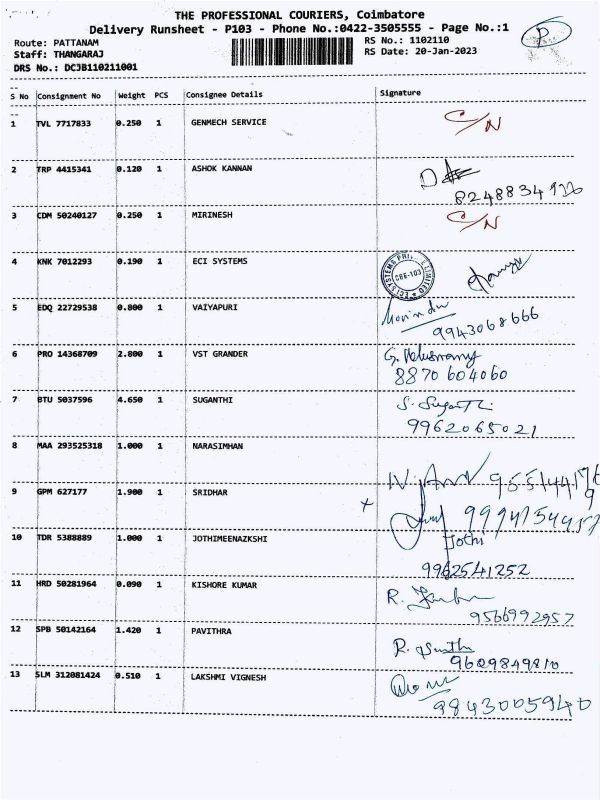 THE PROFESSIONAL COURIERS, Coimbatore
Delivery Runsheet - P103 - Phone No.:0422-3505555 - Page No.:1
Route: PATTANAM RS No.: 1102110
Staff: THANGARAJ RS Date: 20-Jan-2023
DRS No.: DCJB110211001
S No Consignment No Weight PCS Consignee Details Signature
1 TVL 7717833 0.250 1 GENMECH SERVICE C/N
2 TRP 4415341 0.120 1 ASHOK KANNAN
3 CDM 50240127 0.250 1 MIRINESH C/N
4 KNK 7012293 0.190 1 ECI SYSTEMS
ECI SYSTEMS PRIVATE LIMITED
CBE-103
5 EDQ 22729538 0.800 1 VAIYAPURI
9943068666
6 PRO 14368709 2.800 1 VST GRANDER G. Veluswamy
8870604060
7 BTU 5037596 4.650 1 SUGANTHI S. Suganthi
9962065021
8 MAA 293525318 1.000 1 NARASIMHAN
9 GPM 627177 1.900 1 SRIDHAR
10 TDR 5388889 1.000 1 JOTHIMEENAZKSHI Jothi
9962541252
11 HRD 50281964 0.090 1 KISHORE KUMAR R.
9566992957
12 SPB 50142164 1.420 1 PAVITHRA R.
9629849810
13 SLM 312081424 0.510 1 LAKSHMI VIGNESH
9843005940